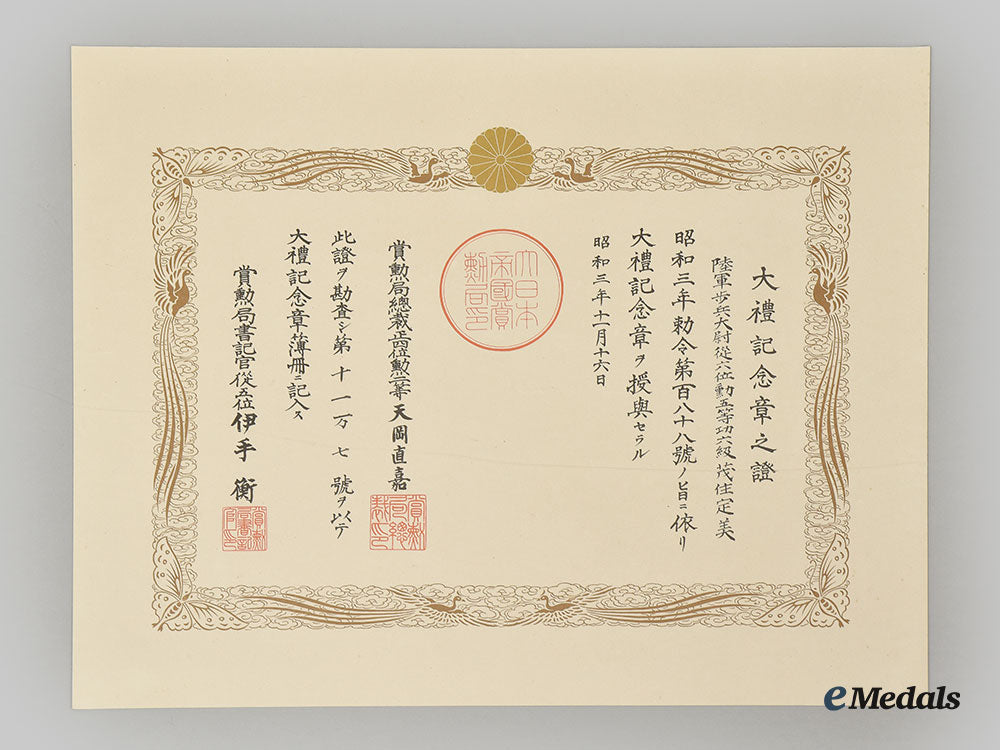 大禮記念章之證
陸軍歩兵大尉從六位勳五等功六級茂住定美
昭和三年勅令第百八十八號ノ旨ニ依リ
大禮記念章ヲ授與セラル
昭和三年十一月十六日
大日本
帝國賞
勳局印
賞勳局總裁正四位勳二等天岡直嘉
賞勳
局總
裁印
此證ヲ勘査シ第十一万七號ヲ以テ
大禮記念章簿冊ニ記入ス
賞勳局書記官從五位伊手衡
賞勳
局書記
官印
eMedals